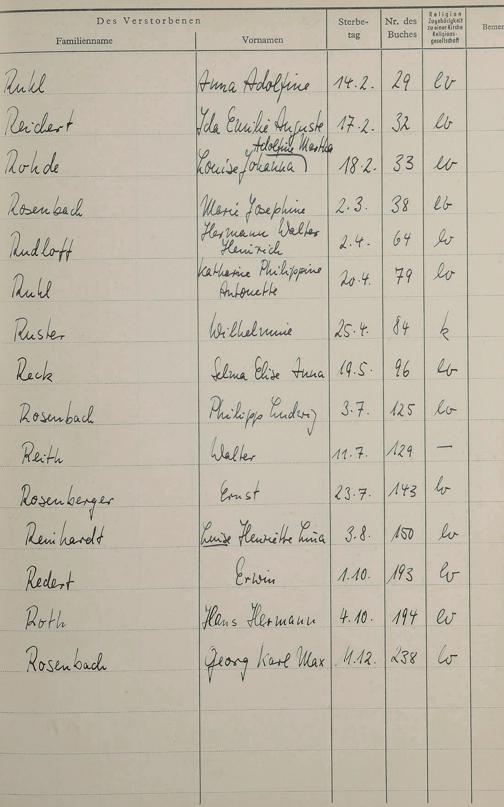 Des Verstorbenen
Familienname Vornamen Sterbe-tag Nr. des Buches Religion Zugehörigkeit zu einer Kirche Religions-gesellschaft Bemer
Ruhl Anna Adolfine 14.2. 29 ev
Reichert Ida Emilie Auguste 17.2. 32 ev
Adolfine Martha
Rohde Louise Johanna 18.2. 33 ev
Rosenbach Marie Josephine 2.3. 38 ev
Rudloff Hermann Walter Heinrich 2.4. 64 ev
Ruhl Katharine Philippine Antonette 20.4. 79 ev
Ruster Wilhelmine 25.4. 84 k
Reck Selma Elise Anna 19.5. 96 ev
Rosenbach Philipp Ludwig 3.7. 125 ev
Reith Walter 11.7. 129 —
Rosenberger Ernst 23.7. 143 ev
Reinhardt Luise Henriette Lina 3.8. 150 ev
Redert Erwin 1.10. 193 ev
Roth Hans Hermann 4.10. 194 ev
Rosenbach Georg Karl Max 11.12. 238 ev